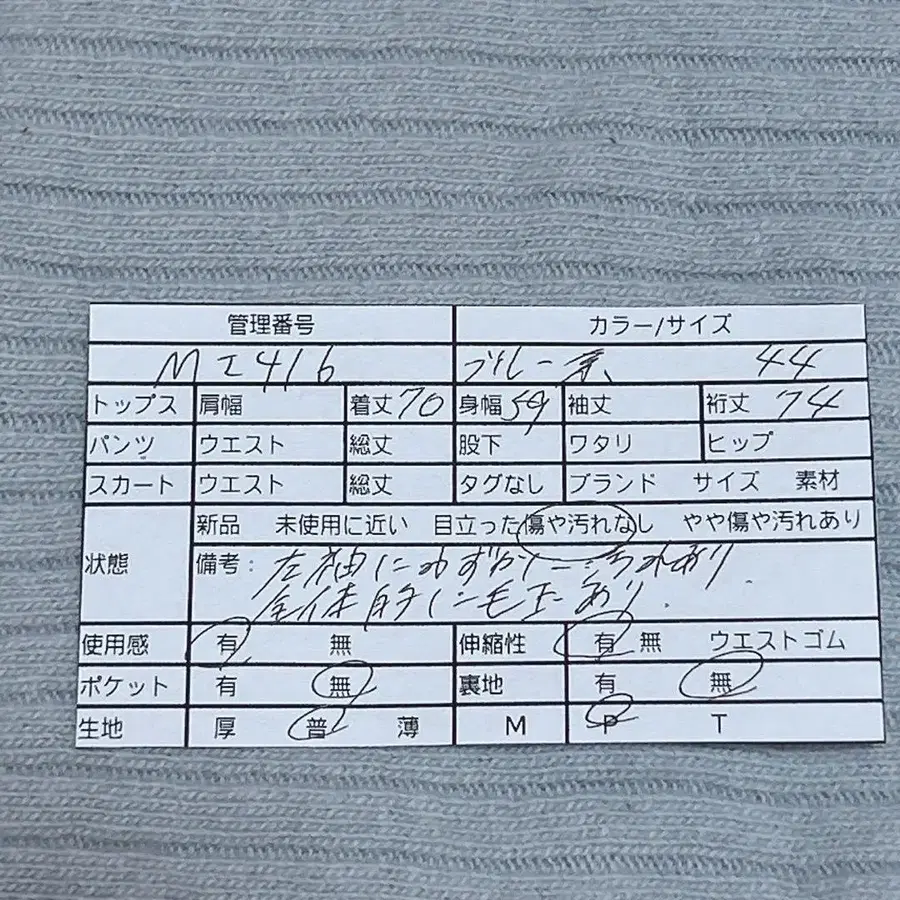 管理番号 カラー/サイズ
MI416 ブルー系 44
トップス 肩幅 着丈 70 身幅 59 袖丈 裄丈 74
パンツ ウエスト 総丈 股下 ワタリ ヒップ
スカート ウエスト 総丈 タグなし ブランド サイズ 素材
状態 新品 未使用に近い 目立った傷や汚れなし やや傷や汚れあり
備考: 左袖にわずかに汚れあり
全体的に毛玉あり.
使用感 有 無 伸縮性 有 無 ウエストゴム
ポケット 有 無 裏地 有 無
生地 厚 普 薄 M P T